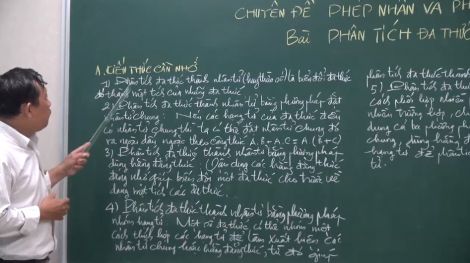 CHUYÊN ĐỀ PHÉP NHÂN VÀ PH
Bài PHÂN TÍCH ĐA THỨC
A. KIẾN THỨC CẦN NHỚ
1) Phân tích đa thức thành nhân tử (hay thừa số) là biến đổi đa thức
đó thành một tích của những đa thức
2) Phân tích đa thức thành nhân tử bằng phương pháp đặt
nhân tử chung: Nếu các hạng tử của đa thức đều
có nhân tử chung thì ta có thể đặt nhân tử chung đó
ra ngoài dấu ngoặc theo công thức A.B + A.C = A(B+C)
3) Phân tích đa thức thành nhân tử bằng phương pháp
dùng hằng đẳng thức: dùng các hằng đẳng thức
đáng nhớ giúp biến đổi một đa thức cho trước về
dạng một tích các đa thức.
4) Phân tích đa thức thành nhân tử bằng phương pháp
nhóm hạng tử. Một đa thức có thể nhóm một
cách thích hợp các hạng tử để làm xuất hiện các
nhân tử chung hoặc hằng đẳng thức, từ đó giúp
phân tích đa thức thành
5) Phân tích đa
cách phối hợp nhiều
nhiều trường hợp, ch
dụng cả ba phương
chung, dùng hằng đ
hạng tử để phân
tử.